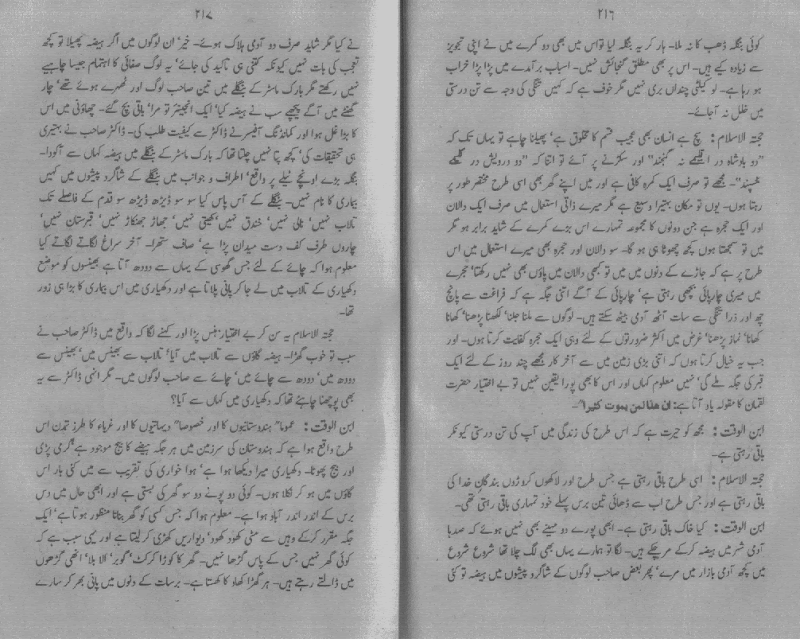 ۲۱۶
کوئی بنگلہ ڈھب کا نہ ملا۔ ہار کر یہ بنگلہ لیا تو اس میں بھی دو کمرے میں نے اپنی تجویز
سے زیادہ کیے ہیں۔ اس پر بھی مطلق گنجائش نہیں۔ اسباب برآمدے میں پڑا پڑا خراب
ہو رہا ہے۔ نو کیٹی چنداں بری نہیں مگر خوف ہے کہ کہیں تنگی کی وجہ سے تن درستی
میں خلل نہ آ جائے۔
حجتہ الاسلام: سچ ہے انسان بھی عجیب قسم کا مخلوق ہے' پھیلنا چاہے تو یہاں تک کہ
"دو بادشاہ در اقلیمے نہ گنجند" اور سکڑنے پر آئے تو اتنا کہ "دہ درویش در گلیمے
خسپند"۔ مجھے تو صرف ایک کمرہ کافی ہے اور میں اپنے گھر بھی اسی طرح مختصر طور پر
رہتا ہوں۔ یوں تو مکان بہتیرا وسیع ہے مگر میرے ذاتی استعمال میں صرف ایک دالان
اور ایک حجرہ ہے جن دونوں کا مجموعہ تمہارے اس بڑے کمرے کے شاید برابر ہو مگر
میں تو سمجھتا ہوں کچھ چھوٹا ہی ہو گا۔ سو دالان اور حجرہ بھی میرے استعمال میں اس
طرح پر ہے کہ جاڑے کے دنوں میں میں تو کبھی دالان میں پاؤں بھی نہیں رکھتا' حجرے
میں میری چارپائی بچھی رہتی ہے' چارپائی کے آگے اتنی جگہ ہے کہ فراغت سے پانچ
چھ اور ذرا تنگی سے سات آٹھ آدمی بیٹھ سکتے ہیں۔ لوگوں سے ملنا جلنا' لکھنا پڑھنا' کھانا
کھانا' نماز پڑھنا' غرض میں اکثر ضرورتوں کے لئے وہی ایک حجرہ کفایت کرتا ہوں۔ اور
جب یہ خیال کرتا ہوں کہ اتنی بڑی زمین میں سے آخر کار مجھے چند روز کے لئے ایک
قبر کی جگہ ملے گی' نہیں معلوم کہاں اور اس کا بھی پورا یقین نہیں تو بے اختیار حضرت
لقمان کا مقولہ یاد آتا ہے: ان هذا لمن يموت كثيرا"۔
ابن الوقت: مجھ کو حیرت ہے کہ اس طرح کی زندگی میں آپ کی تن درستی کیونکر
باقی رہتی ہے۔
حجتہ الاسلام: اسی طرح باقی رہتی ہے جس طرح اور لاکھوں کروڑوں بندگان خدا کی
باقی رہتی ہے اور جس طرح اب سے ڈھائی تین برس پہلے خود تمہاری باقی رہتی تھی۔
ابن الوقت: کیا خاک باقی رہتی ہے۔ ابھی پورے دو مہینے بھی نہیں ہوئے کہ صدہا
آدمی شہر میں ہیضہ کر کے مر چکے ہیں۔ لگا تو ہمارے یہاں بھی لگ چلا تھا شروع شروع
میں کچھ آدمی بازار میں مرے' پھر بعض صاحب لوگوں کے شاگرد پیشوں میں ہیضہ تو کئی
۲۱۷
نے کیا مگر شاید صرف دو آدمی ہلاک ہوئے۔ خیر' ان لوگوں میں اگر ہیضہ پھیلا تو کچھ
تعجب کی بات نہیں کیونکہ کتنی ہی تاکید کی جائے' یہ لوگ صفائی کا اہتمام جیسا چاہیے
نہیں رکھتے مگر بارک ماسٹر کے بنگلے میں تین صاحب لوگ اور ٹھہرے ہوئے تھے' چار
گھنٹے میں آگے پیچھے سب نے ہیضہ کیا' ایک انجینئر تو مرا' باقی بچ گئے۔ چھاؤنی میں اس
کا بڑا غل ہوا اور کمانڈنگ آفیسر نے ڈاکٹر سے کیفیت طلب کی۔ ڈاکٹر صاحب نے بہتیری
ہی تحقیقات کی' کچھ پتا نہیں چلتا تھا کہ بارک ماسٹر کے بنگلے میں ہیضہ کہاں سے آ کودا۔
بنگلہ بڑے اونچے ٹیلے پر واقع' اطراف و جوانب میں بنگلے کے شاگرد پیشوں میں کہیں
بیماری کا نام نہیں۔ بنگلے کے آس پاس کیا سو سو ڈیڑھ ڈیڑھ سو قدم کے فاصلے تک
تالاب نہیں' نالی نہیں' خندق نہیں' کھیتی نہیں' جھاڑ جھنکاڑ نہیں' قبرستان نہیں'
چاروں طرف کف دست میدان پڑا ہے' صاف ستھرا۔ آخر سراغ لگاتے لگاتے کیا
معلوم ہوا کہ چائے کے لئے جس گھوسی کے یہاں سے دودھ آتا ہے بھینسوں کو موضع
دکھیاری کے تالاب میں لے جا کر پانی پلاتا ہے اور دکھیاری میں اس بیماری کا بڑا ہی زور
تھا۔
حجتہ الاسلام یہ سن کر بے اختیار ہنس پڑا اور کہنے لگا کہ واقع میں ڈاکٹر صاحب نے
سبب تو خوب گھڑا۔ ہیضہ گاؤں سے تالاب میں آیا' تالاب سے بھینس میں' بھینس سے
دودھ میں' دودھ سے چائے میں' چائے سے صاحب لوگوں میں۔ مگر انہی ڈاکٹر سے یہ
بھی پوچھنا چاہئے تھا کہ دکھیاری میں کہاں سے آیا؟
ابن الوقت: عموماً ہندوستانیوں کا اور خصوصاً دیہاتیوں کا اور غرباء کا طرز تمدن اس
طرح واقع ہوا ہے کہ ہندوستان کی سرزمین میں ہر جگہ ہیضے کا بیج موجود ہے' گرمی پڑی
اور بیج پھوٹا۔ دکھیاری میرا دیکھا ہوا ہے' ہوا خواری کی تقریب سے میں کئی بار اس
گاؤں میں ہو کر نکلا ہوں۔ کوئی دو پونے دو سو گھر کی بستی ہے اور ابھی حال میں دس
برس کے اندر اندر آباد ہوا ہے۔ معلوم ہوا کہ جس کسی کو گھر بنانا منظور ہوتا ہے' ایک
جگہ مقرر کر کے وہیں سے مٹی کھود کھود' دیواریں کھڑی کر لیتا ہے اور یہی سبب ہے کہ
کوئی گھر نہیں جس کے پاس گڑھا نہیں۔ گھر کا کوڑا کرکٹ' گوبر' الا بلا' انھی گڑھوں
میں ڈالتے رہتے ہیں۔ ہر گڑھا کھاد کا کھتا ہے۔ برسات کے دنوں میں پانی بھر کر سارے